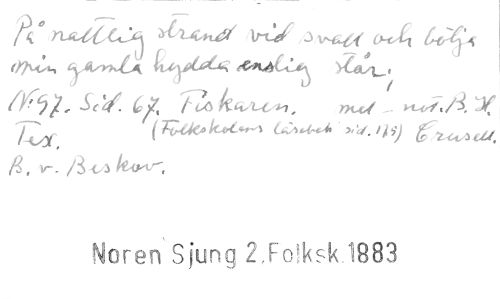 På nattlig strand vid svall och bölja
min gamla hydda enslig står,
N:97. Sid. 67. Fiskaren. med not. B. H.
Tex. (Folkskolans läsebok sid. 179) Crusell.
B. v. Beskov.
Noren Sjung 2, Folksk. 1883